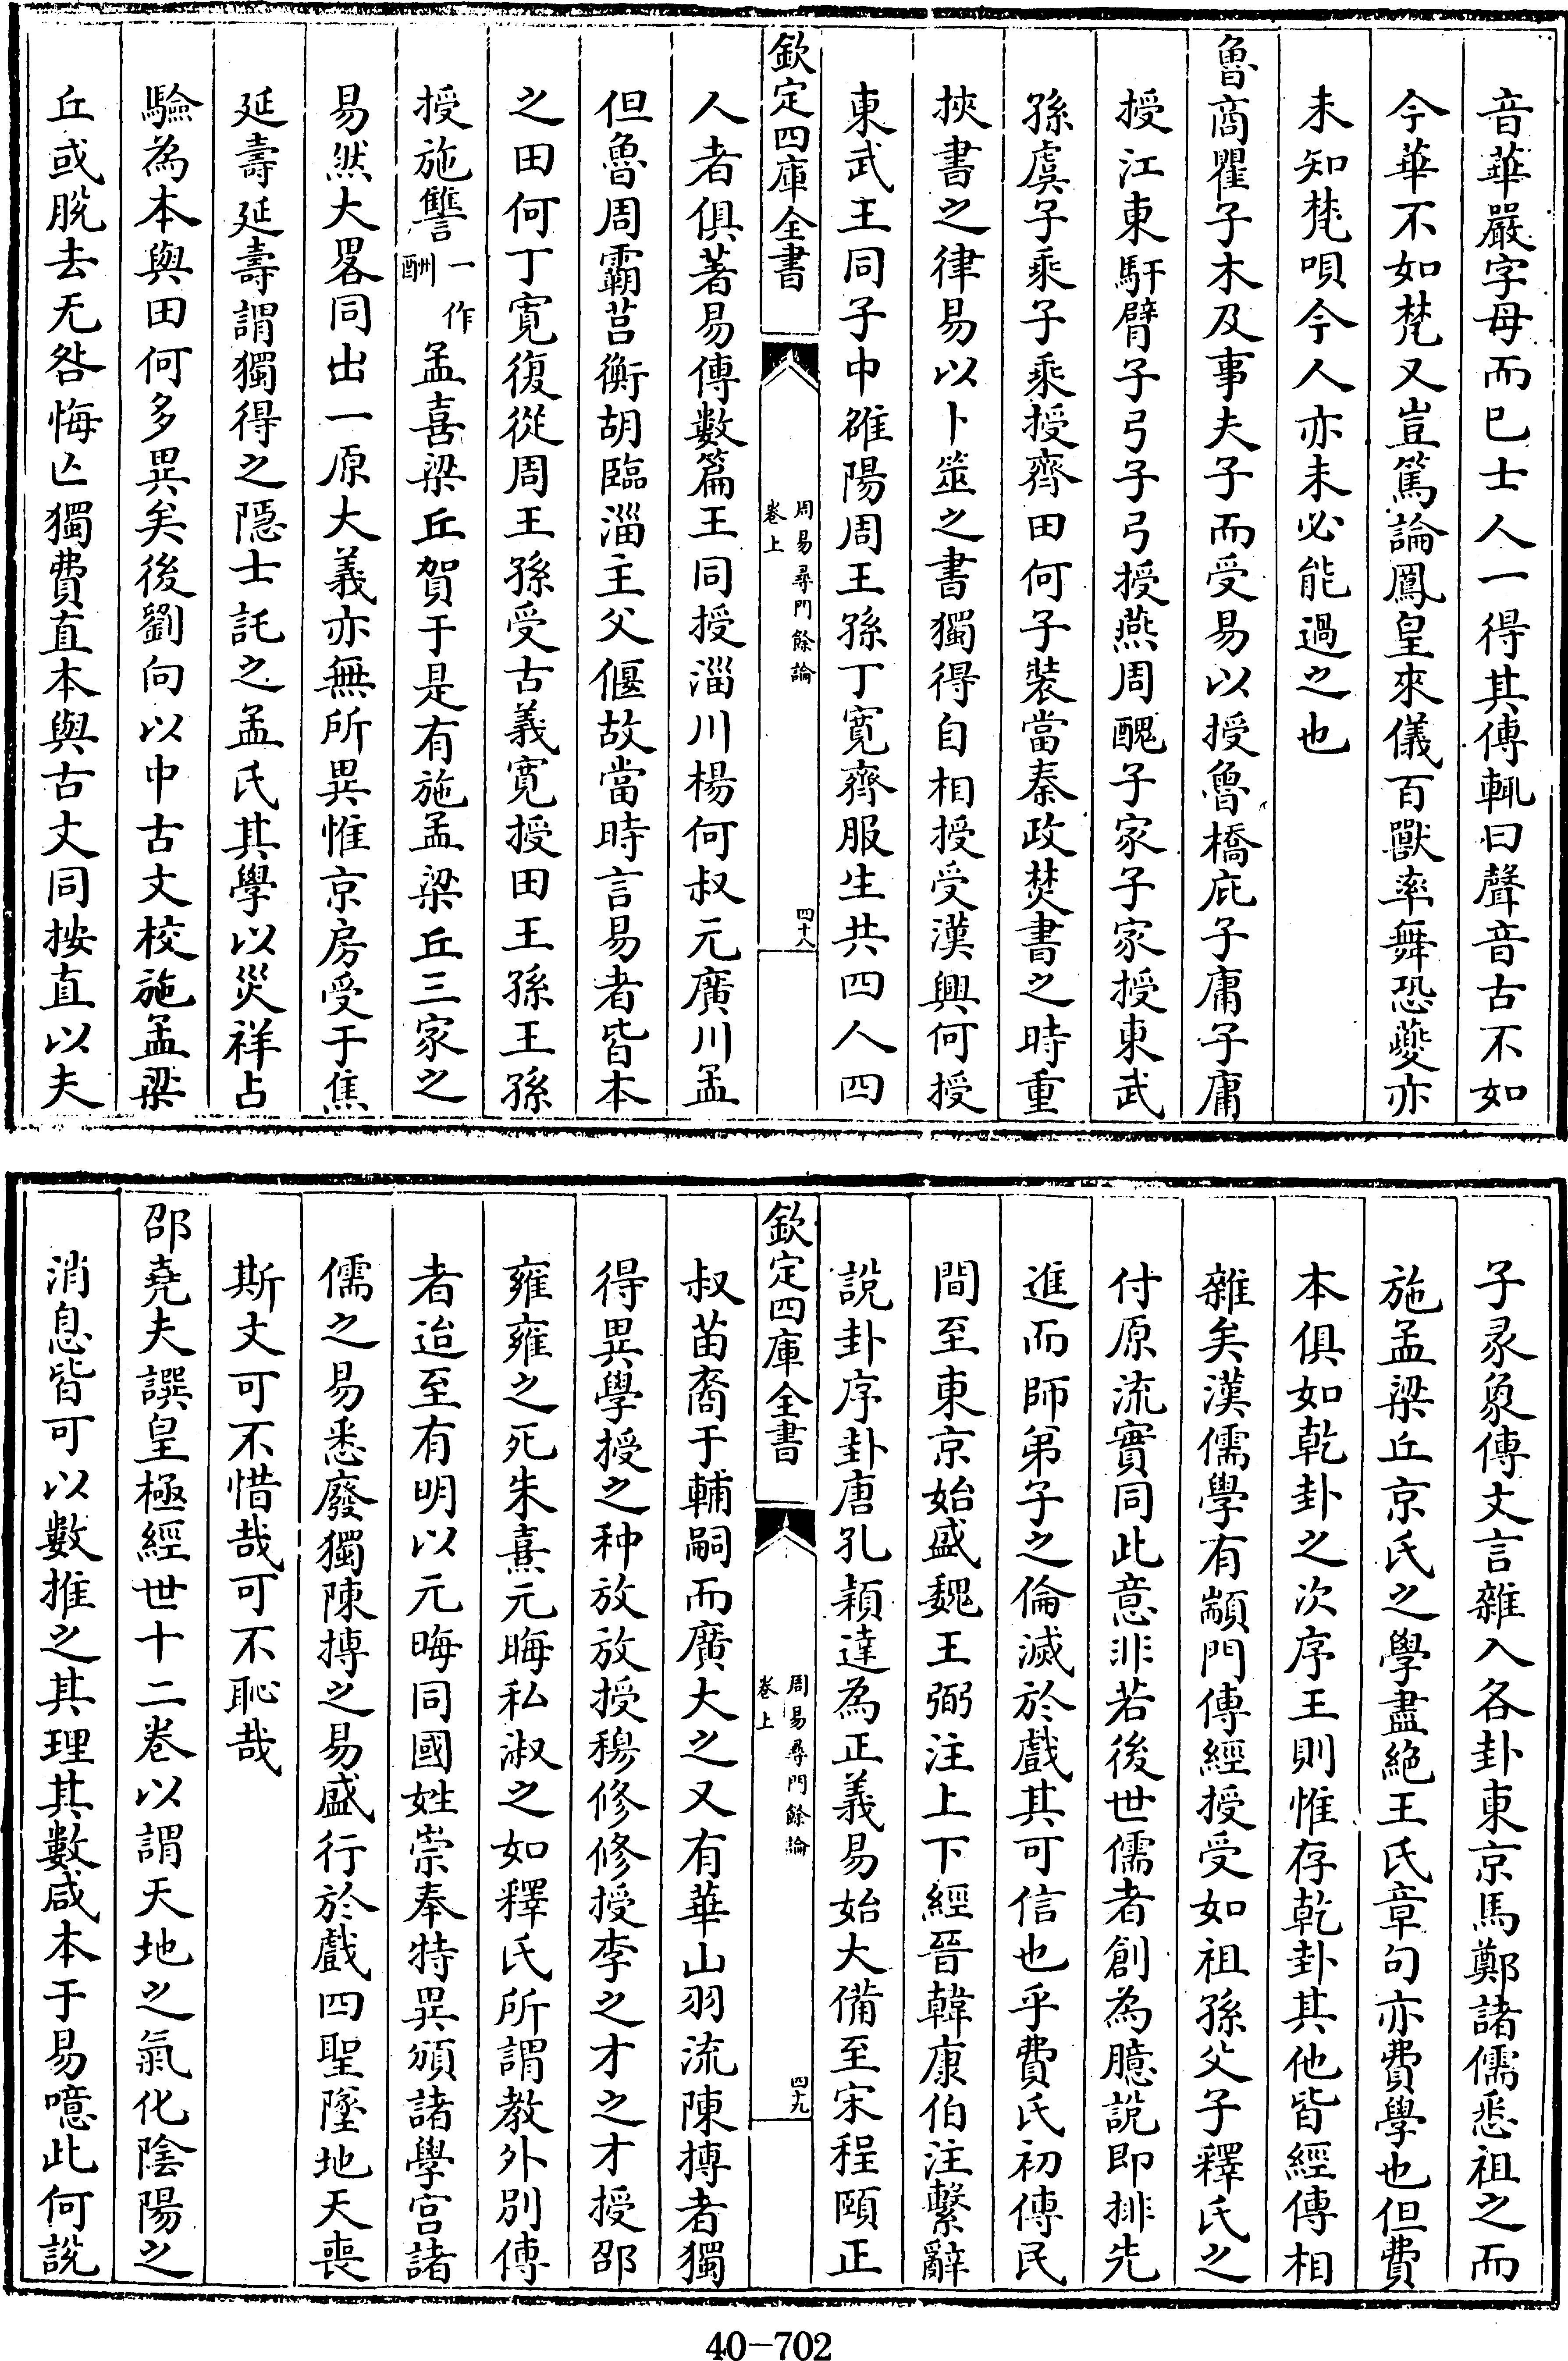 音華嚴字母而已士人一得其傳輒曰聲音古不如
今華不如梵又豈篤論鳳皇來儀百獸率舞恐夔亦
未知梵唄今人亦未必能過之也
魯商瞿子木及事夫子而受易以授魯橋庇子庸子庸
授江東馯臂子弓子弓授燕周醜子家子家授東武
孫虞子乘子乘授齊田何子裝當秦政焚書之時重
挾書之律易以卜筮之書獨得自相授受漢興何授
東武王同子中雒陽周王孫丁寬齊服生共四人四
欽定四庫全書
周易尋門餘論
卷上
四十八
人者俱著易傳數篇王同授淄川楊何叔元廣川孟
但魯周霸莒衡胡臨淄主父偃故當時言易者皆本
之田何丁寬復從周王孫受古義寬授田王孫王孫
授施讐一作酬孟喜梁丘賀于是有施孟梁丘三家之
易然大畧同出一原大義亦無所異惟京房受于焦
延壽延壽謂獨得之隱士託之孟氏其學以災祥占
驗為本與田何多異矣後劉向以中古文校施孟梁
丘或脫去无咎悔亡獨費直本與古文同按直以夫
子彖象傳文言雜入各卦東京馬鄭諸儒悉祖之而
施孟梁丘京氏之學盡絕王氏章句亦費學也但費
本俱如乾卦之次序王則惟存乾卦其他皆經傳相
雜矣漢儒學有顓門傳經授受如祖孫父子釋氏之
付原流實同此意非若後世儒者創為臆說即排先
進而師弟子之倫滅於戲其可信也乎費氏初傳民
間至東京始盛魏王弼注上下經晉韓康伯注繫辭
說卦序卦唐孔穎達為正義易始大備至宋程頤正
欽定四庫全書
周易尋門餘論
卷上
四十九
叔苗裔于輔嗣而廣大之又有華山羽流陳摶者獨
得異學授之种放放授穆修修授李之才之才授邵
雍雍之死朱熹元晦私淑之如釋氏所謂教外別傳
者迨至有明以元晦同國姓崇奉特異頒諸學宮諸
儒之易悉廢獨陳摶之易盛行於戲四聖墜地天喪
斯文可不惜哉可不恥哉
邵堯夫譔皇極經世十二卷以謂天地之氣化陰陽之
消息皆可以數推之其理其數咸本于易噫此何說
40-702